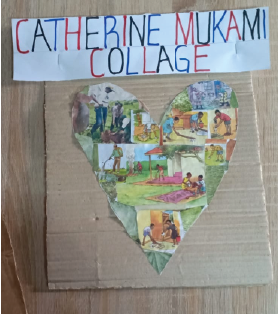 CATHERINE MUKAMI
COLLAGE